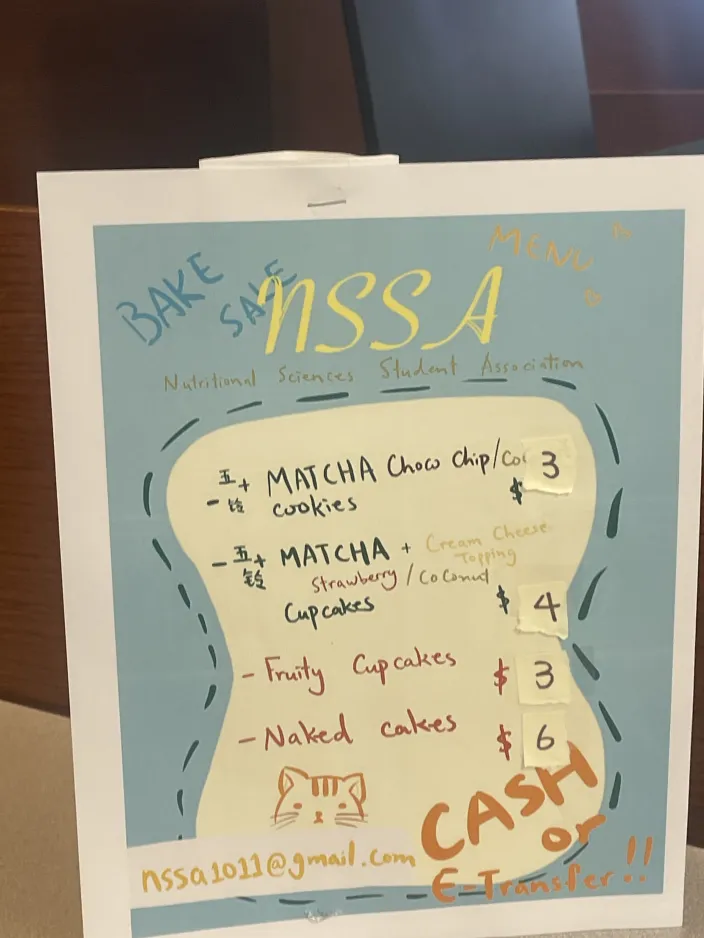 BAKE SALE
MENU
NSSA
Nutritional Sciences Student Association
五十 MATCHA Choco Chip/
- 铃 cookies $ 3
- 五十 MATCHA + Cream Cheese Topping
铃 Strawberry/Coconut
Cupcakes $ 4
- Fruity Cupcakes $ 3
- Naked cakes $ 6
CASH
or
nssa1011@gmail.com
E-Transfer!!